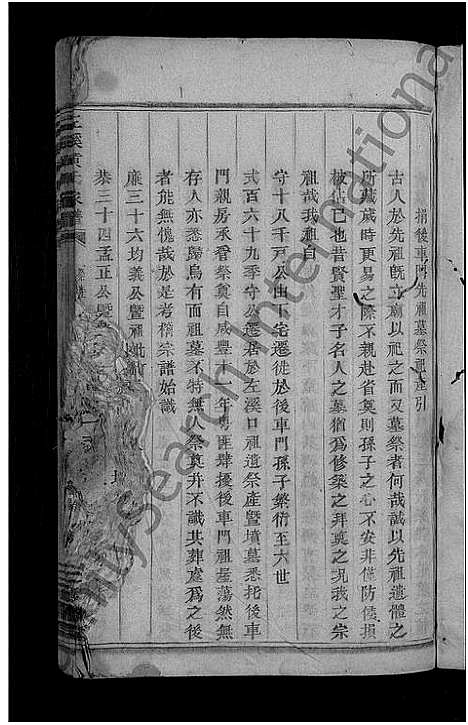 捐後車門先祖墓祭祖產引
古人於先祖既立廟以祀之而又墓祭者何哉誠以先祖遺體之
所藏歲時更易之際不親赴省奠則孫子之心不安非僅防侵損
被佔已也昔賢聖才子名人之墓猶為修築之拜奠之况我之宗
祖哉我祖自
守十八千河公由下宅遷徙於後車門孫子縈衍至六世
式百六十九季守公遷居於左溪口祖遺祭產暨墳墓悉托後車
門親房承吞祭奠自咸豐十一年粵匪肆擾後車門祖屋蕩然無
存人亦悉歸烏有而祖墓不特無人祭奠并不識其葬處為之後
者能無愧哉於是考稽宗譜始識
廉三十六均義公暨祖妣
恭三十四孟正公暨